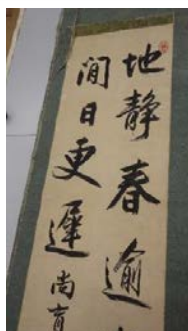 地静春逾
間日更遲
尚育